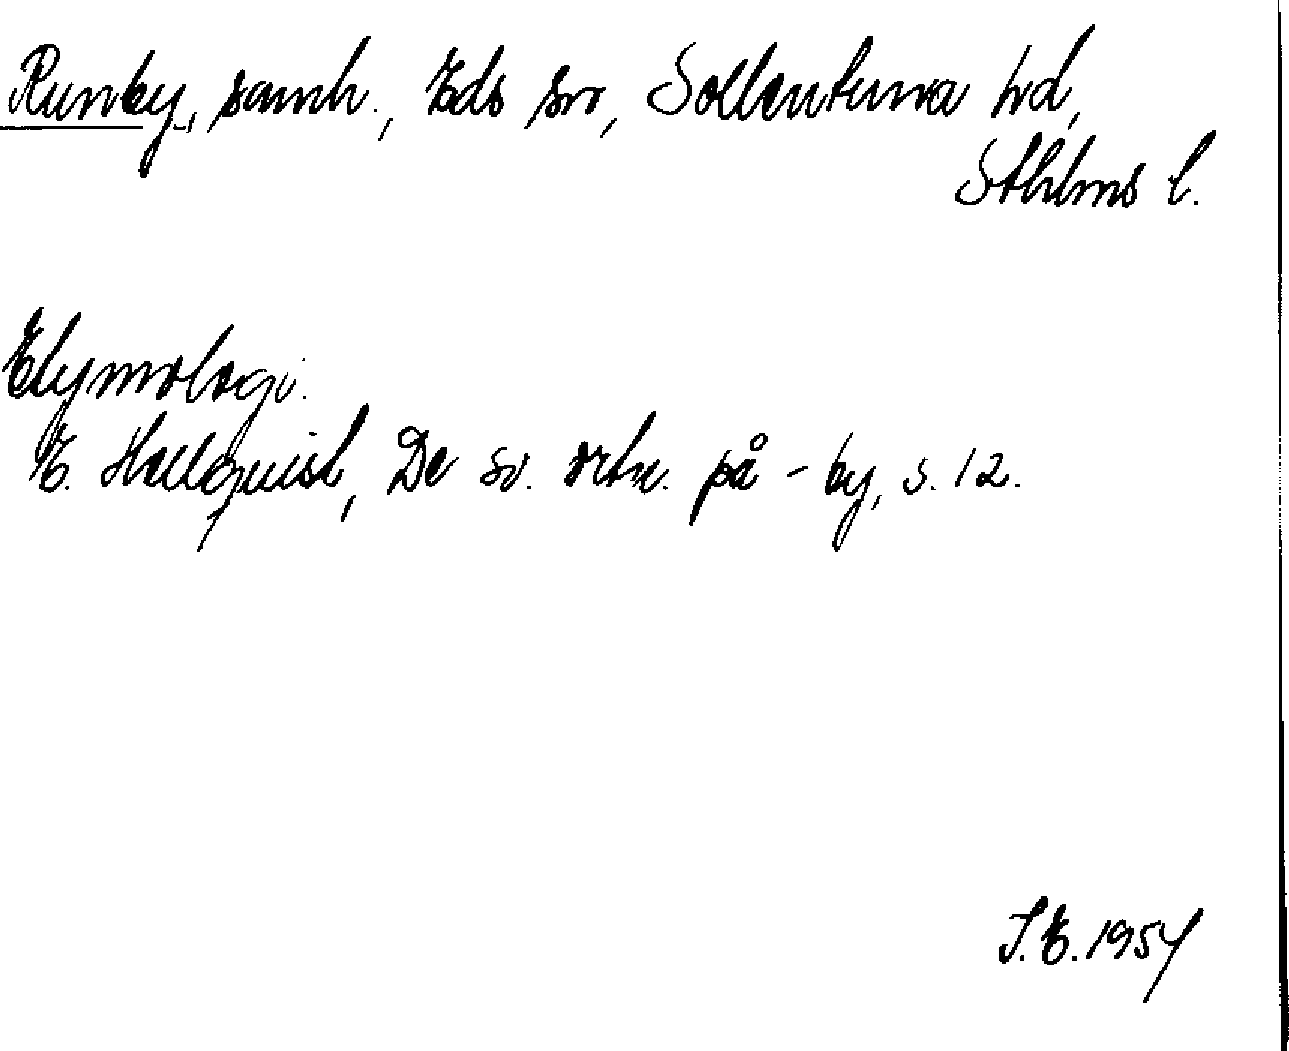 Runby, samh., Eds sn, Sollentuna hd,
Sthlms l.
Etymologi.
E. Hellquist, De sv. ortn. på -by, s. 12.
I.E. 1954